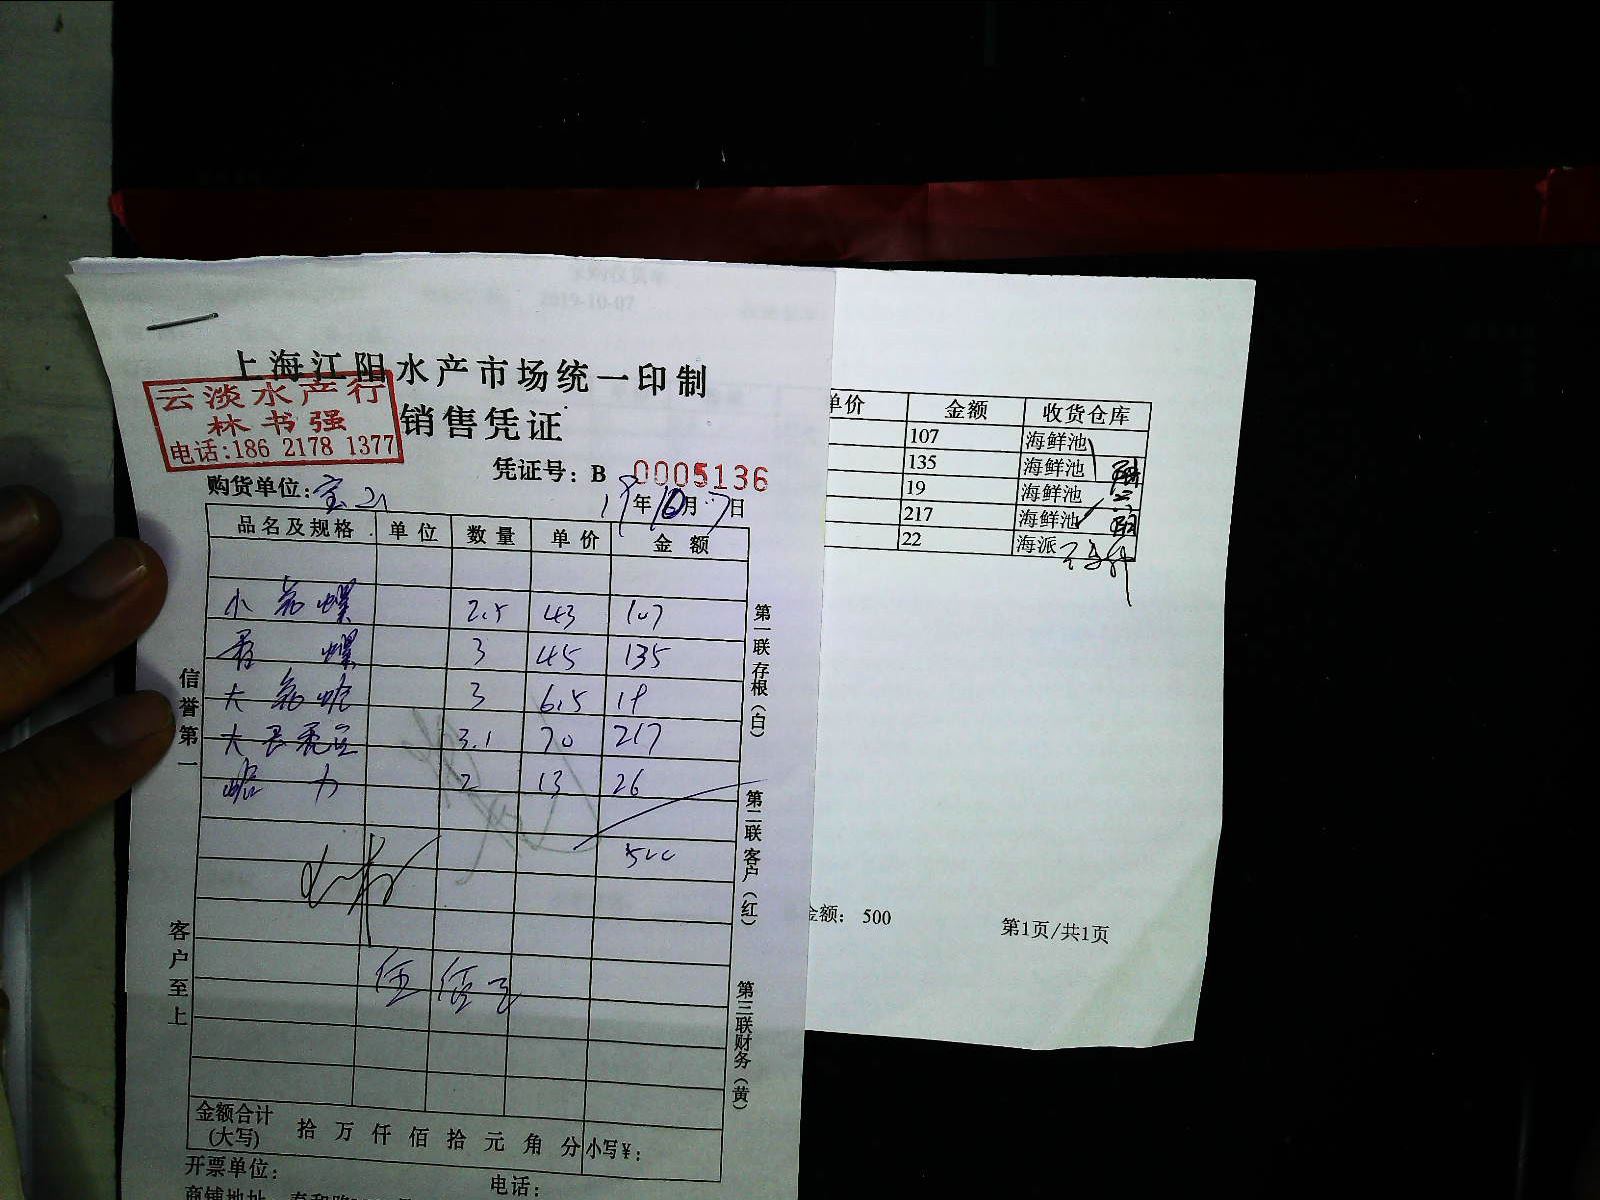 2019-10-07
上海江阳水产市场统一印制
云淡水产行
林书强
电话:186 2178 1377
销售凭证
凭证号: B 0005136
购货单位:宝山
19年10月7日
品名及规格 单位 数量 单价 金额
小 螺 2.5 43 107
螺 3 45 135
大 3 6.5 19
大 3.1 70 217
力 2 13 26
500
伍佰元
信誉第一
客户至上
第一联存根(白)
第二联客户(红)
第三联财务(黄)
金额合计
(大写) 拾 万 仟 佰 拾 元 角 分 小写¥:
开票单位:
电话:
商铺地址
单价 金额 收货仓库
107 海鲜池
135 海鲜池
19 海鲜池
217 海鲜池
22 海派
金额: 500
第1页/共1页